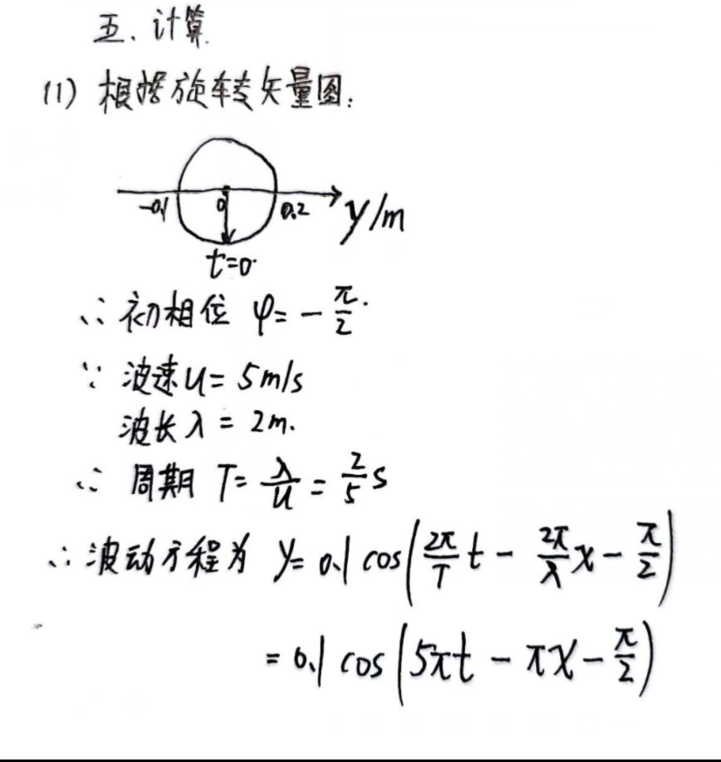 五、计算
(1) 根据旋转矢量图:
-0.1 0 0.2 y/m
t=0
∴ 初相位 φ = -π/2.
∵ 波速u = 5m/s
波长λ = 2m.
∴ 周期 T = λ/u = 2/5 s
∴ 波动方程为 y = 0.1 cos(2π/T t - 2π/λ x - π/2)
= 0.1 cos(5πt - πx - π/2)